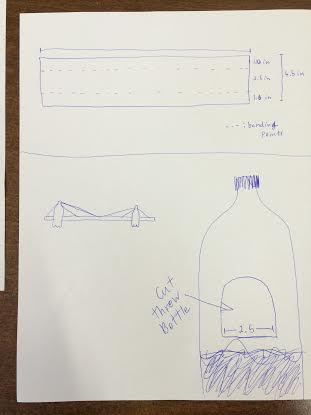 1.0 in
2.5 in
4.5 in
1.0 in
---: bending
points
Cut
threw
Bottle
2.5